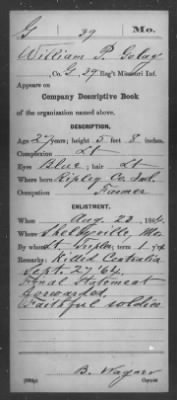 G 39 Mo.
William P. Golay
, Co. G, 39 Reg't Missouri Inf.
Appears on
Company Descriptive Book
of the organization named above.
DESCRIPTION.
Age 27 years; height 5 feet 8 inches.
Complexion Lt
Eyes Blue; hair Lt
Where born Ripley Co. Ind.
Occupation Farmer
ENLISTMENT.
When Aug. 23, 1864.
Where Shelbyville, Mo
By whom Lt. ; term 1 y'rs
Remarks: Killed Centralia
Sept. 27 '64.
Final Statement
forwarded.
Faithful soldier
B. Wagner
Copyist